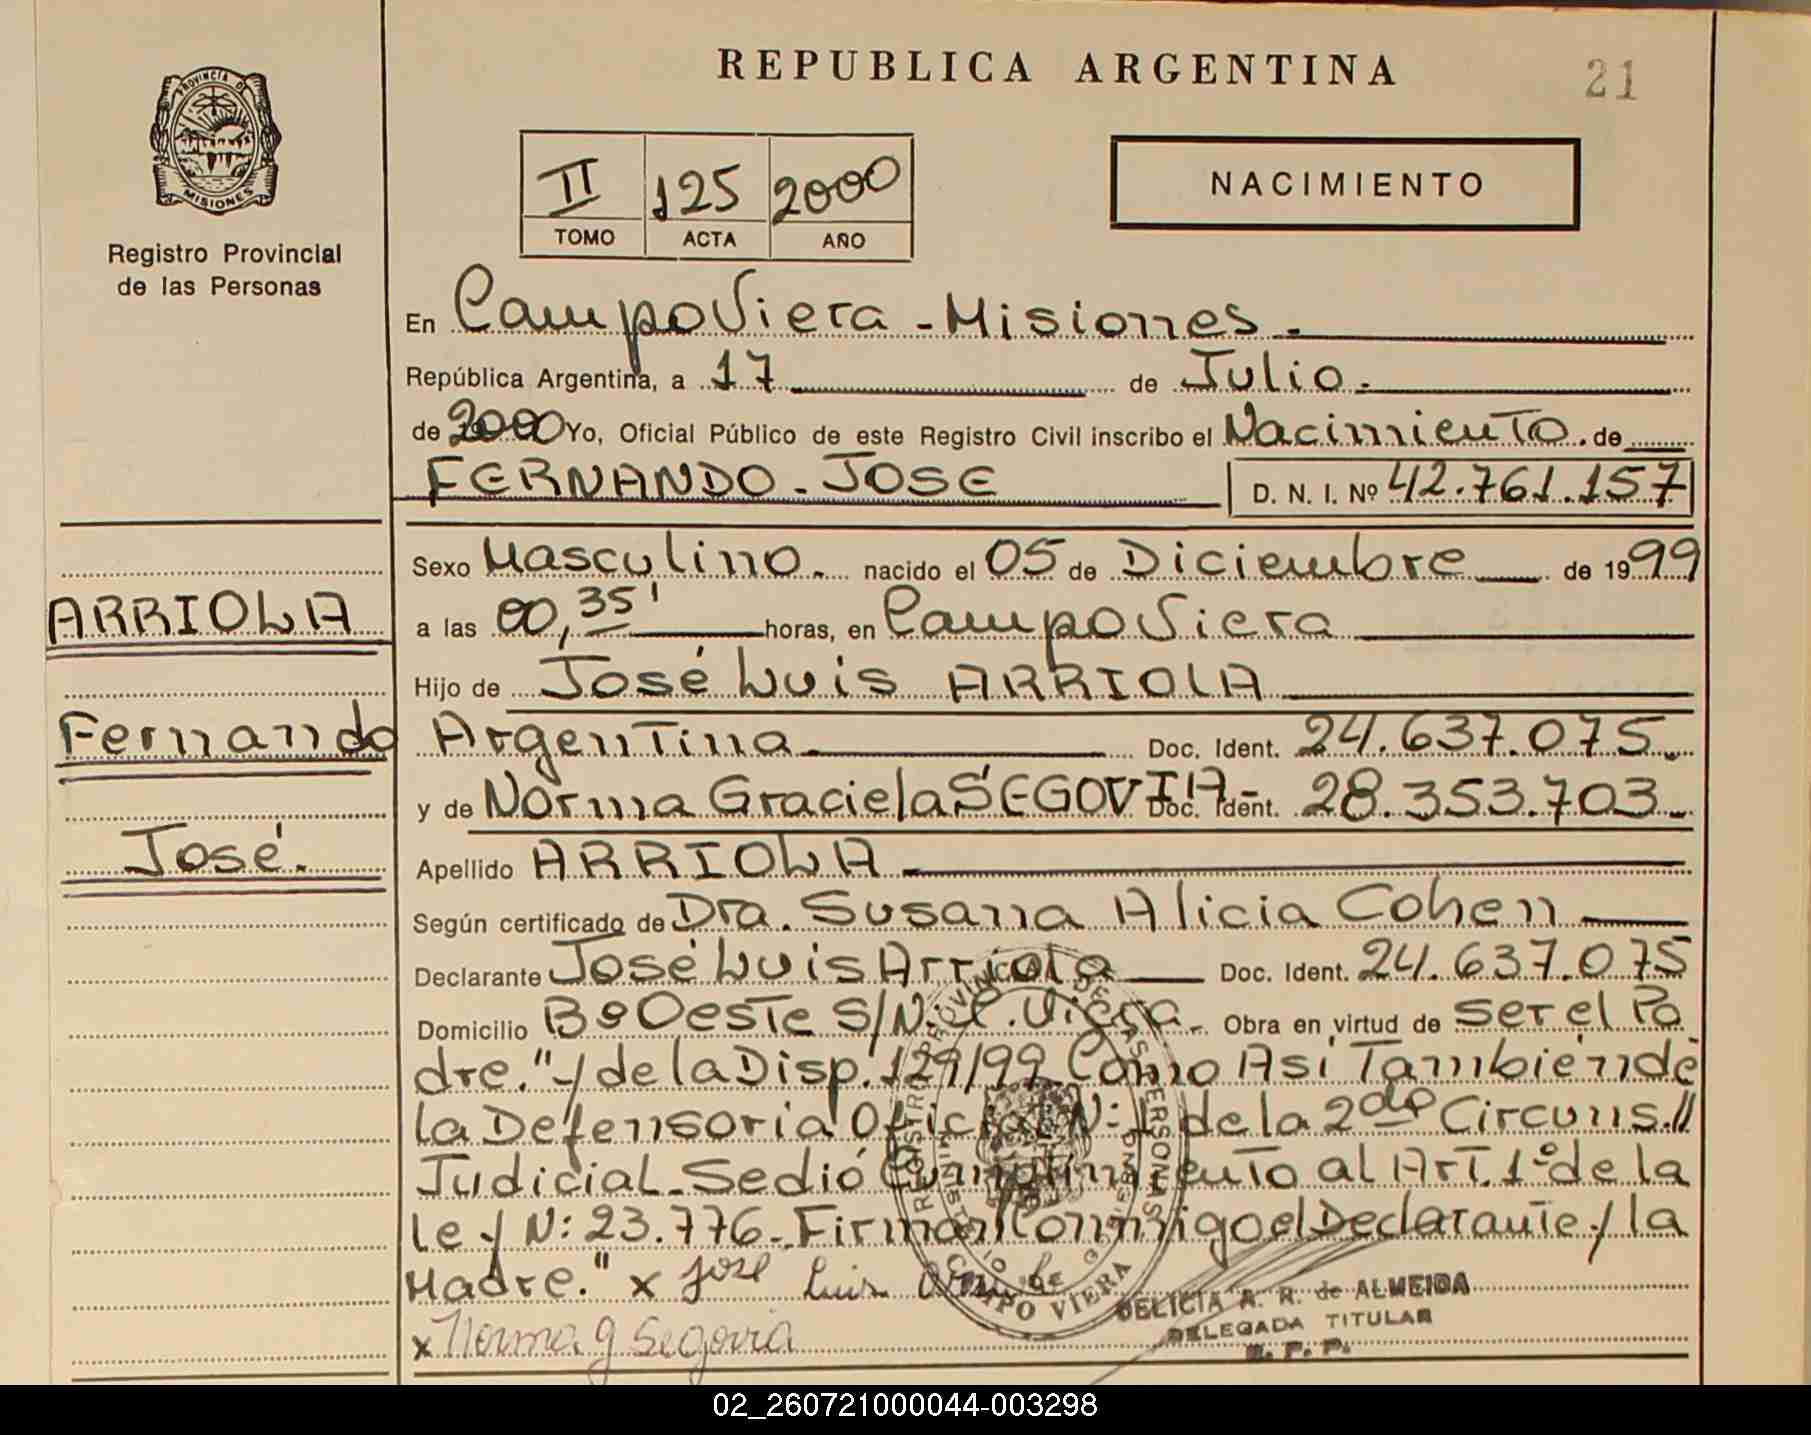 REPUBLICA ARGENTINA
21
PROVINCIA DE
MISIONES
Registro Provincial
de las Personas
II 125 2000
TOMO ACTA AÑO
NACIMIENTO
En Campo Viera - Misiones.
República Argentina, a 17 de Julio.
de 2000 Yo, Oficial Público de este Registro Civil inscribo el Nacimiento. de
FERNANDO - JOSE D. N. I. Nº 42.761.157
Sexo Masculino. nacido el 05 de Diciembre de 1999
ARRIOLA
a las 00,35' horas, en Campo Viera
Hijo de José Luis ARRIOLA
Fernando
Argentina Doc. Ident. 24.637.075.
y de Norma Graciela SEGOVIA - Doc. Ident. 28.353.703.
José.
Apellido ARRIOLA
Según certificado de Dra. Susana Alicia Cohen
Declarante José Luis Arriola Doc. Ident. 24.637.075
Domicilio Bº Oeste S/N. C. Viera. Obra en virtud de ser el Pa
dre." y de la Disp. 129/99 Como Así También de
la Defensoria Oficial N: 1 de la 2da Circuns.//
Judicial - Se dió Cumplimiento al Art. 1º de la
ley N: 23.776 - Firman Conmigo el Declarante y la
Madre." x José Luis Arriola
x Norma G Segovia
CAMPO VIERA
DELICIA A. R. de ALMEIDA
DELEGADA TITULAR
R. P. P.
02_260721000044-003298